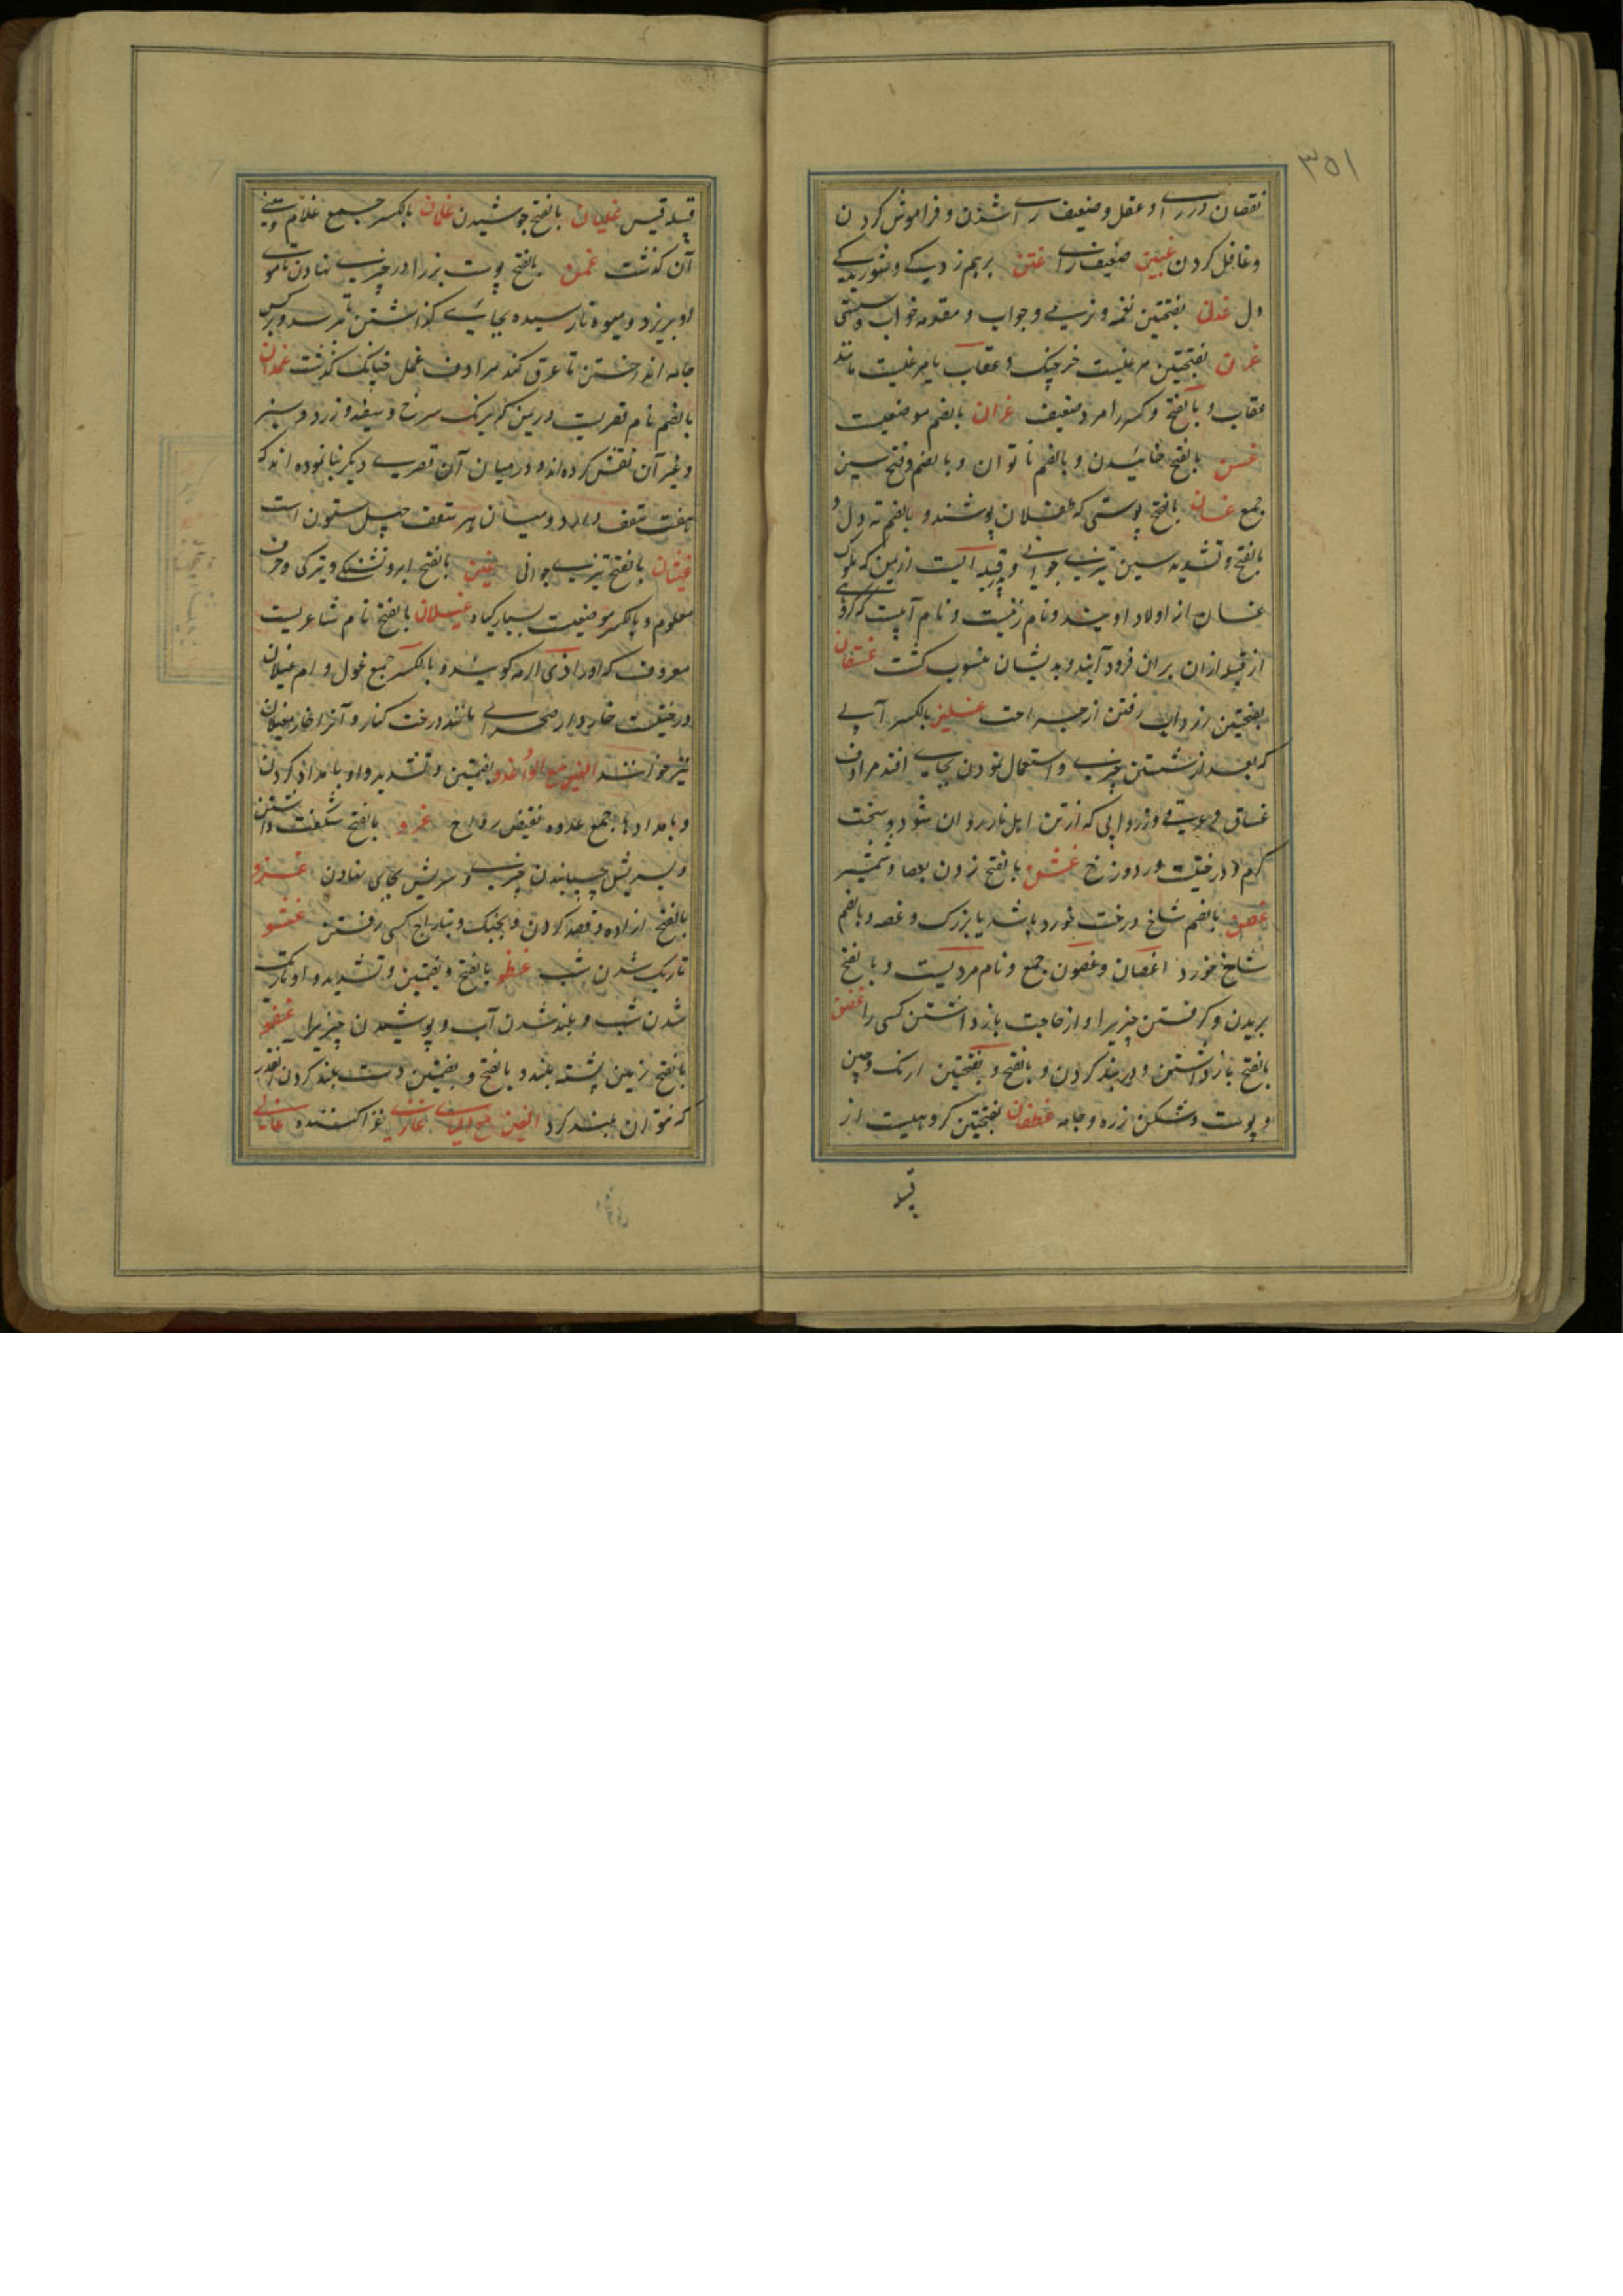 ۳۵۱
نقصان در رای و عقل و ضعیف رای شدن و فراموش کردن
و غافل کردن غبین ضعیف رای غثن برهم زدگی و شوریدگی
دل غدن بفتحتین نغمه و نرمی و جواب و مقدمه خواب و سستی
غرن بفتحتین مرغیست خرچنک و عقاب یا مرغیست مانند
عقاب و بالفتح و کسر را مرد ضعیف غران بالضم موضعیست
غسن بالفتح خائیدن و بالضم ناتوان و بالضم و فتح سین
جمع غسان بالفتح پوستی که طفلان پوشند و بالضم ته دل و
بالفتح و تشدید سین تیزی جوانی و قبیله ایست از یمن که ملوک
غسان از اولاد اویند و نام زنیست و نام آبیست که گروهی
از قبیله ازان بران فرود آیند و بدیشان منسوب کشت غسقان
بفتحتین زرداب رفتن از جراحت غسلین بالکسر آبی
که بعد از شستن چیزی و استعمال نمودن بجای افتد مرادف
غساق و زردابی که از تن اهل نار روان شود و سخت
کرم و درختیست در دوزخ غشن بالفتح زدن بعصا و شمشیر
غصن بالضم شاخ درخت خورد باشد یا بزرک و غصه و بالضم
شاخ خورد اغصان و غصون جمع و نام مردیست و بالفتح
بریدن و کرفتن چیزیرا و از حاجت بازداشتن کسی را غضن
بالفتح بازداشتن و دربند کردن و بالفتح و بفتحتین ارنک و چین
و پوست و شکن زره و جامه غطفان بفتحتین کروهیست از
قبیله
قبیله قیس غلیان بالفتح جوشیدن غلمان بالکسر جمع غلام و معنی
آن کذشت غمن بالفتح پوست بز را در چیزی نهادن تا موی
او بریزد و میوه نارسیده بجایی کذاشتن تا برسد و برکس
جامه انداختن تا عرق کند مرادف غمل چنانک کذشت غمدان
بالضم نام قصریست در یمن که برنک سرخ و سفید و زرد و سبز
و غیر آن نقش کرده اند و در میان آن قصری دیکر بنا نموده اند که
هفت سقف دارد و میان هر سقف چهل ستون است
غیسان بالفتح تیزی جوانی غین بالفتح ابر و تشنکی و تیرکی و حرف
معلوم و بالکسر موضعیست بسیار کیاه غیلان بالفتح نام شاعریست
معروف که او را ذی الرمه کویند و بالکسر جمع غول و ام غیلان
درختیست خاردار صحرای مانند درخت کنار و آنرا خار مغیلان
نیز خوانند الغین مع الواو غدو بضمتین و تشدید واو بامداد کردن
و بامدادها جمع غدوه نقیض رواح غرو بالفتح شکفت داشتن
و سریش چسبانیدن چیزی و سریش بجایی نهادن غزو
بالفتح اراده و قصد کردن و بجنک و بتاراج کسی رفتن غسو
تاریک شدن شب غطو بالفتح و بضمتین و تشدید واو تاریک
شدن شب و بلند شدن آب و پوشیدن چیزیرا غفو
بالفتح زمین پشته بلند و بالفتح و بضمتین دست بلند کردن آنقدر
که نتوان بلند کرد الغین مع الیاء غازی غزا کننده غانی